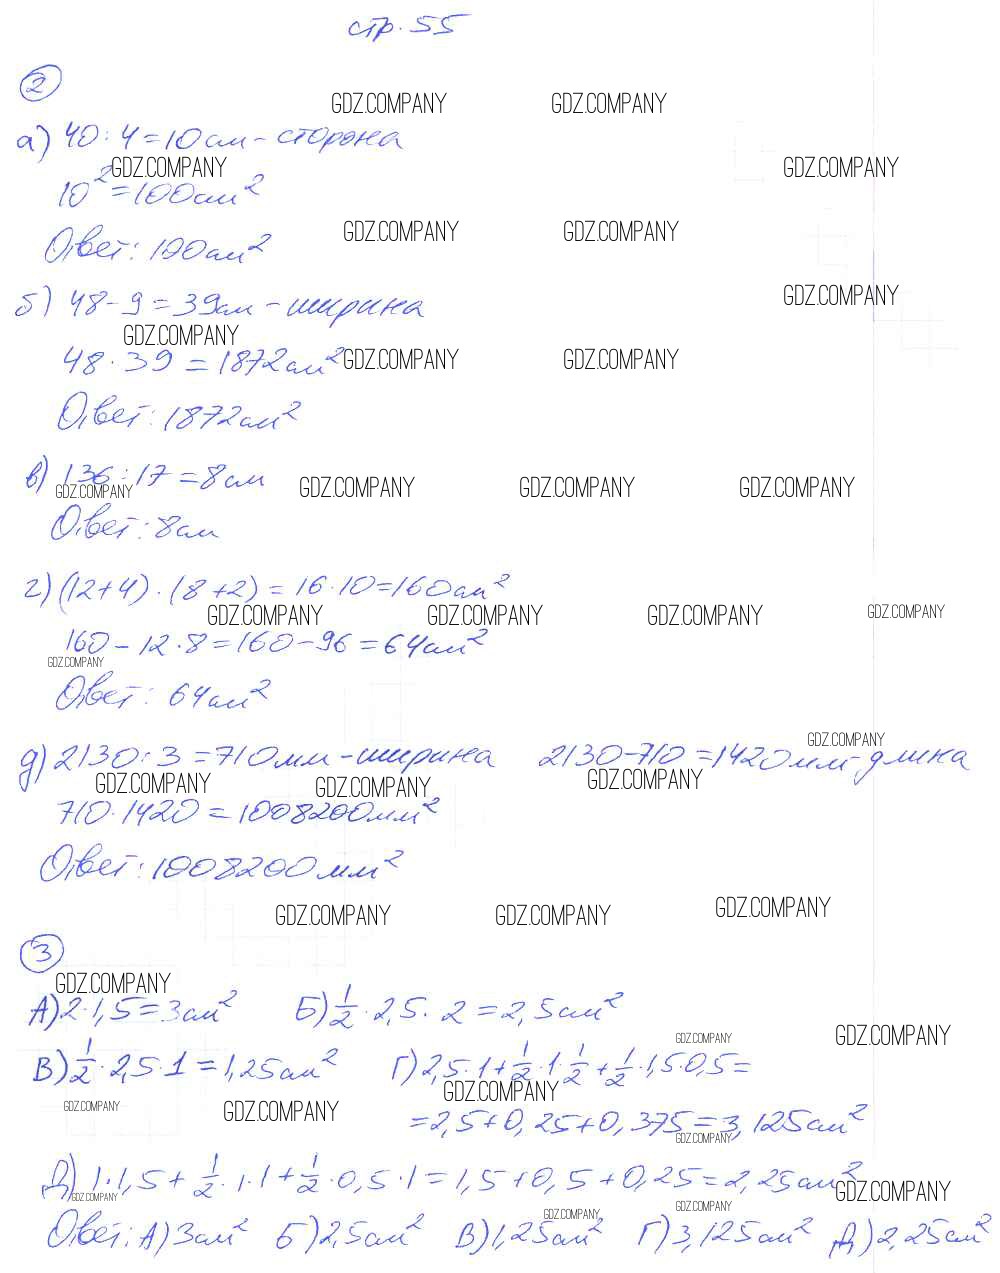 стр. 55
2
GDZ.COMPANY GDZ.COMPANY
а) 40 : 4 = 10 см - сторона
GDZ.COMPANY GDZ.COMPANY
10² = 100 см²
GDZ.COMPANY GDZ.COMPANY
Ответ: 100 см²
GDZ.COMPANY
б) 48 - 9 = 39 см - ширина
GDZ.COMPANY
48 · 39 = 1872 см² GDZ.COMPANY GDZ.COMPANY
Ответ: 1872 см²
в) 136 : 17 = 8 см
GDZ.COMPANY GDZ.COMPANY GDZ.COMPANY GDZ.COMPANY
Ответ: 8 см
г) (12 + 4) · (8 + 2) = 16 · 10 = 160 см²
GDZ.COMPANY GDZ.COMPANY GDZ.COMPANY GDZ.COMPANY
160 - 12 · 8 = 160 - 96 = 64 см²
GDZ.COMPANY
Ответ: 64 см²
GDZ.COMPANY
д) 2130 : 3 = 710 мм - ширина 2130 - 710 = 1420 мм - длина
GDZ.COMPANY GDZ.COMPANY GDZ.COMPANY
710 · 1420 = 1008200 мм²
Ответ: 1008200 мм²
GDZ.COMPANY GDZ.COMPANY GDZ.COMPANY
3
GDZ.COMPANY
А) 2 · 1,5 = 3 см² Б) 1/2 · 2,5 · 2 = 2,5 см²
GDZ.COMPANY GDZ.COMPANY
В) 1/2 · 2,5 · 1 = 1,25 см² Г) 2,5 · 1 + 1/2 · 1 · 1/2 + 1/2 · 1,5 · 0,5 =
GDZ.COMPANY
GDZ.COMPANY GDZ.COMPANY
= 2,5 + 0,25 + 0,375 = 3,125 см²
GDZ.COMPANY
Д) 1 · 1,5 + 1/2 · 1 · 1 + 1/2 · 0,5 · 1 = 1,5 + 0,5 + 0,25 = 2,25 см²
GDZ.COMPANY GDZ.COMPANY
GDZ.COMPANY GDZ.COMPANY
Ответ: А) 3 см² Б) 2,5 см² В) 1,25 см² Г) 3,125 см² Д) 2,25 см²